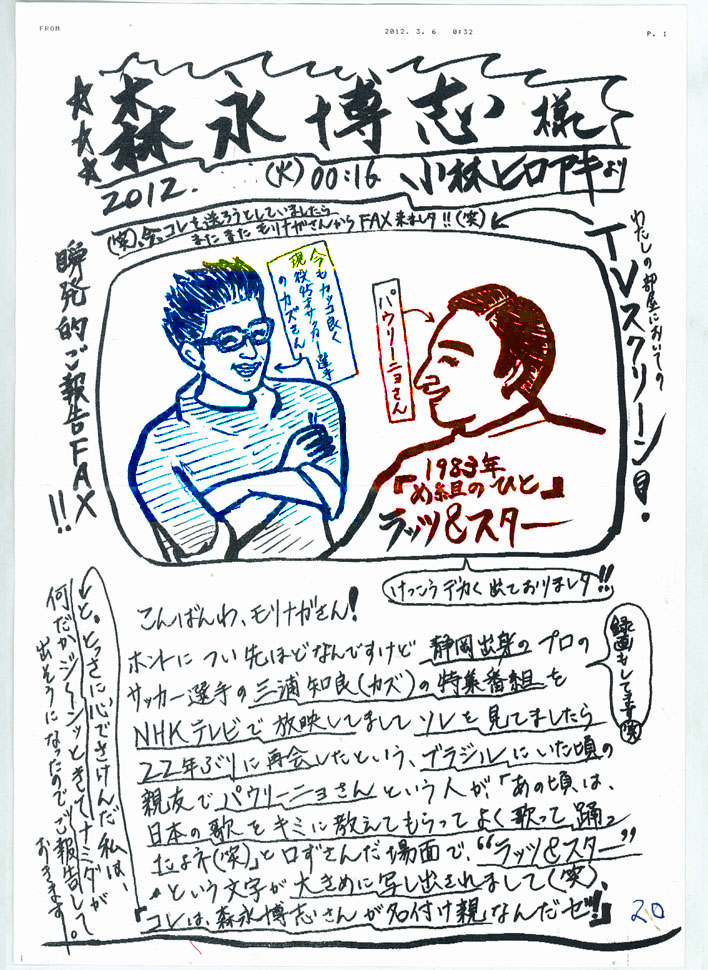 FROM
2012. 3. 6 0:32
P. 1
森永博志 様
2012. (火) 00:16 小林ヒロアキより
(笑)、今、コレを送ろうとしていましたら
またまたモリナガさんからFAX来ましタ!!(笑)
わたしの部屋においての
TVスクリーン!
瞬発的ご報告FAX!!
今もカッコ良く
現役バリバリサッカー選手
のカズさん
パウリーニョさん
1983年
『め組のひと』
ラッツ&スター
けっこうデカく出ておりましタ!!
こんばんわ、モリナガさん!
ホントについ先ほどなんですけど静岡出身のプロの
サッカー選手の三浦知良(カズ)の特集番組を
NHKテレビで放映してましてソレを見てましたら
22年ぶりに再会したという、ブラジルにいた頃の
親友でパウリーニョさんという人が「あの頃は、
日本の歌をキミに教えてもらってよく歌って踊っ
たよネ(笑)」と口ずさんだ場面で、“ラッツ&スター”
という文字が大きめに写し出されまして(笑)、
『コレは、森永博志さんが名付け親なんだゼ!』
録画もしてます(笑)
と。とっさに心でさけんだ私は、
何だかジーンッときてナミダが
出そうになったのでご報告して
おきます。
20